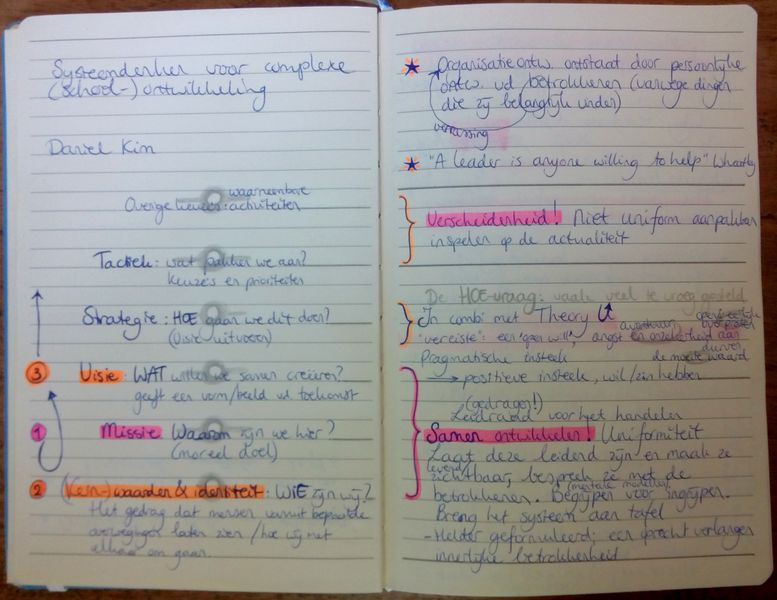 Systeemdenken voor complexe
(school-) ontwikkeling
Daniel Kim
waarneembare
Overige keuzes: activiteiten
Tactiek: wat pakken we aan?
Keuze's en prioriteiten
Strategie: HOE gaan we dit doen?
(Visie uitvoeren)
3 Visie: WAT willen we samen creëren?
geeft een vorm/beeld vd toekomst
1 Missie Waarom zijn we hier?
(moreel doel)
2 (Kern-)waarden & identiteit: WIE zijn wij?
Het gedrag dat mensen vanuit bepaalde
overwegingen laten zien / hoe wij met
elkaar om gaan.
Organisatieontw. ontstaat door persoonlijke
ontw. vd betrokkenen (vanwege dingen
die zij belangrijk vinden)
verrassing
"A leader is anyone willing to help" Wheatley
Verscheidenheid! Niet uniform aanpakken
inspelen op de actualiteit
De HOE-vraag: vaak veel te vroeg gesteld
In combi met Theory U
"vereiste": een 'open will' angst en onzekerheid aan
durven
Pragmatische insteek de moeite waard
→ positieve insteek, wil/zin hebben
(gedragen!)
Leidraad voor het handelen
Samen ontwikkelen! Uniformiteit
Laat deze leidend zijn en maak ze
levend/
zichtbaar, bespreek ze met de
(mentale modellen)
betrokkenen. Begrijpen voor ingrijpen.
Breng het systeem aan tafel
- Helder geformuleerd; een oprecht verlangen
innerlijke betrokkenheid